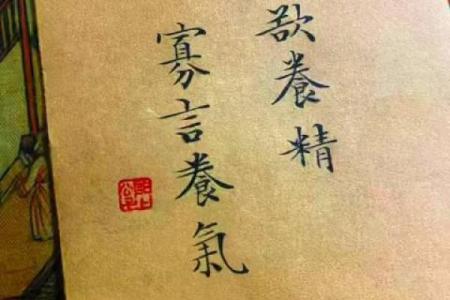 欲養精
寡言養氣